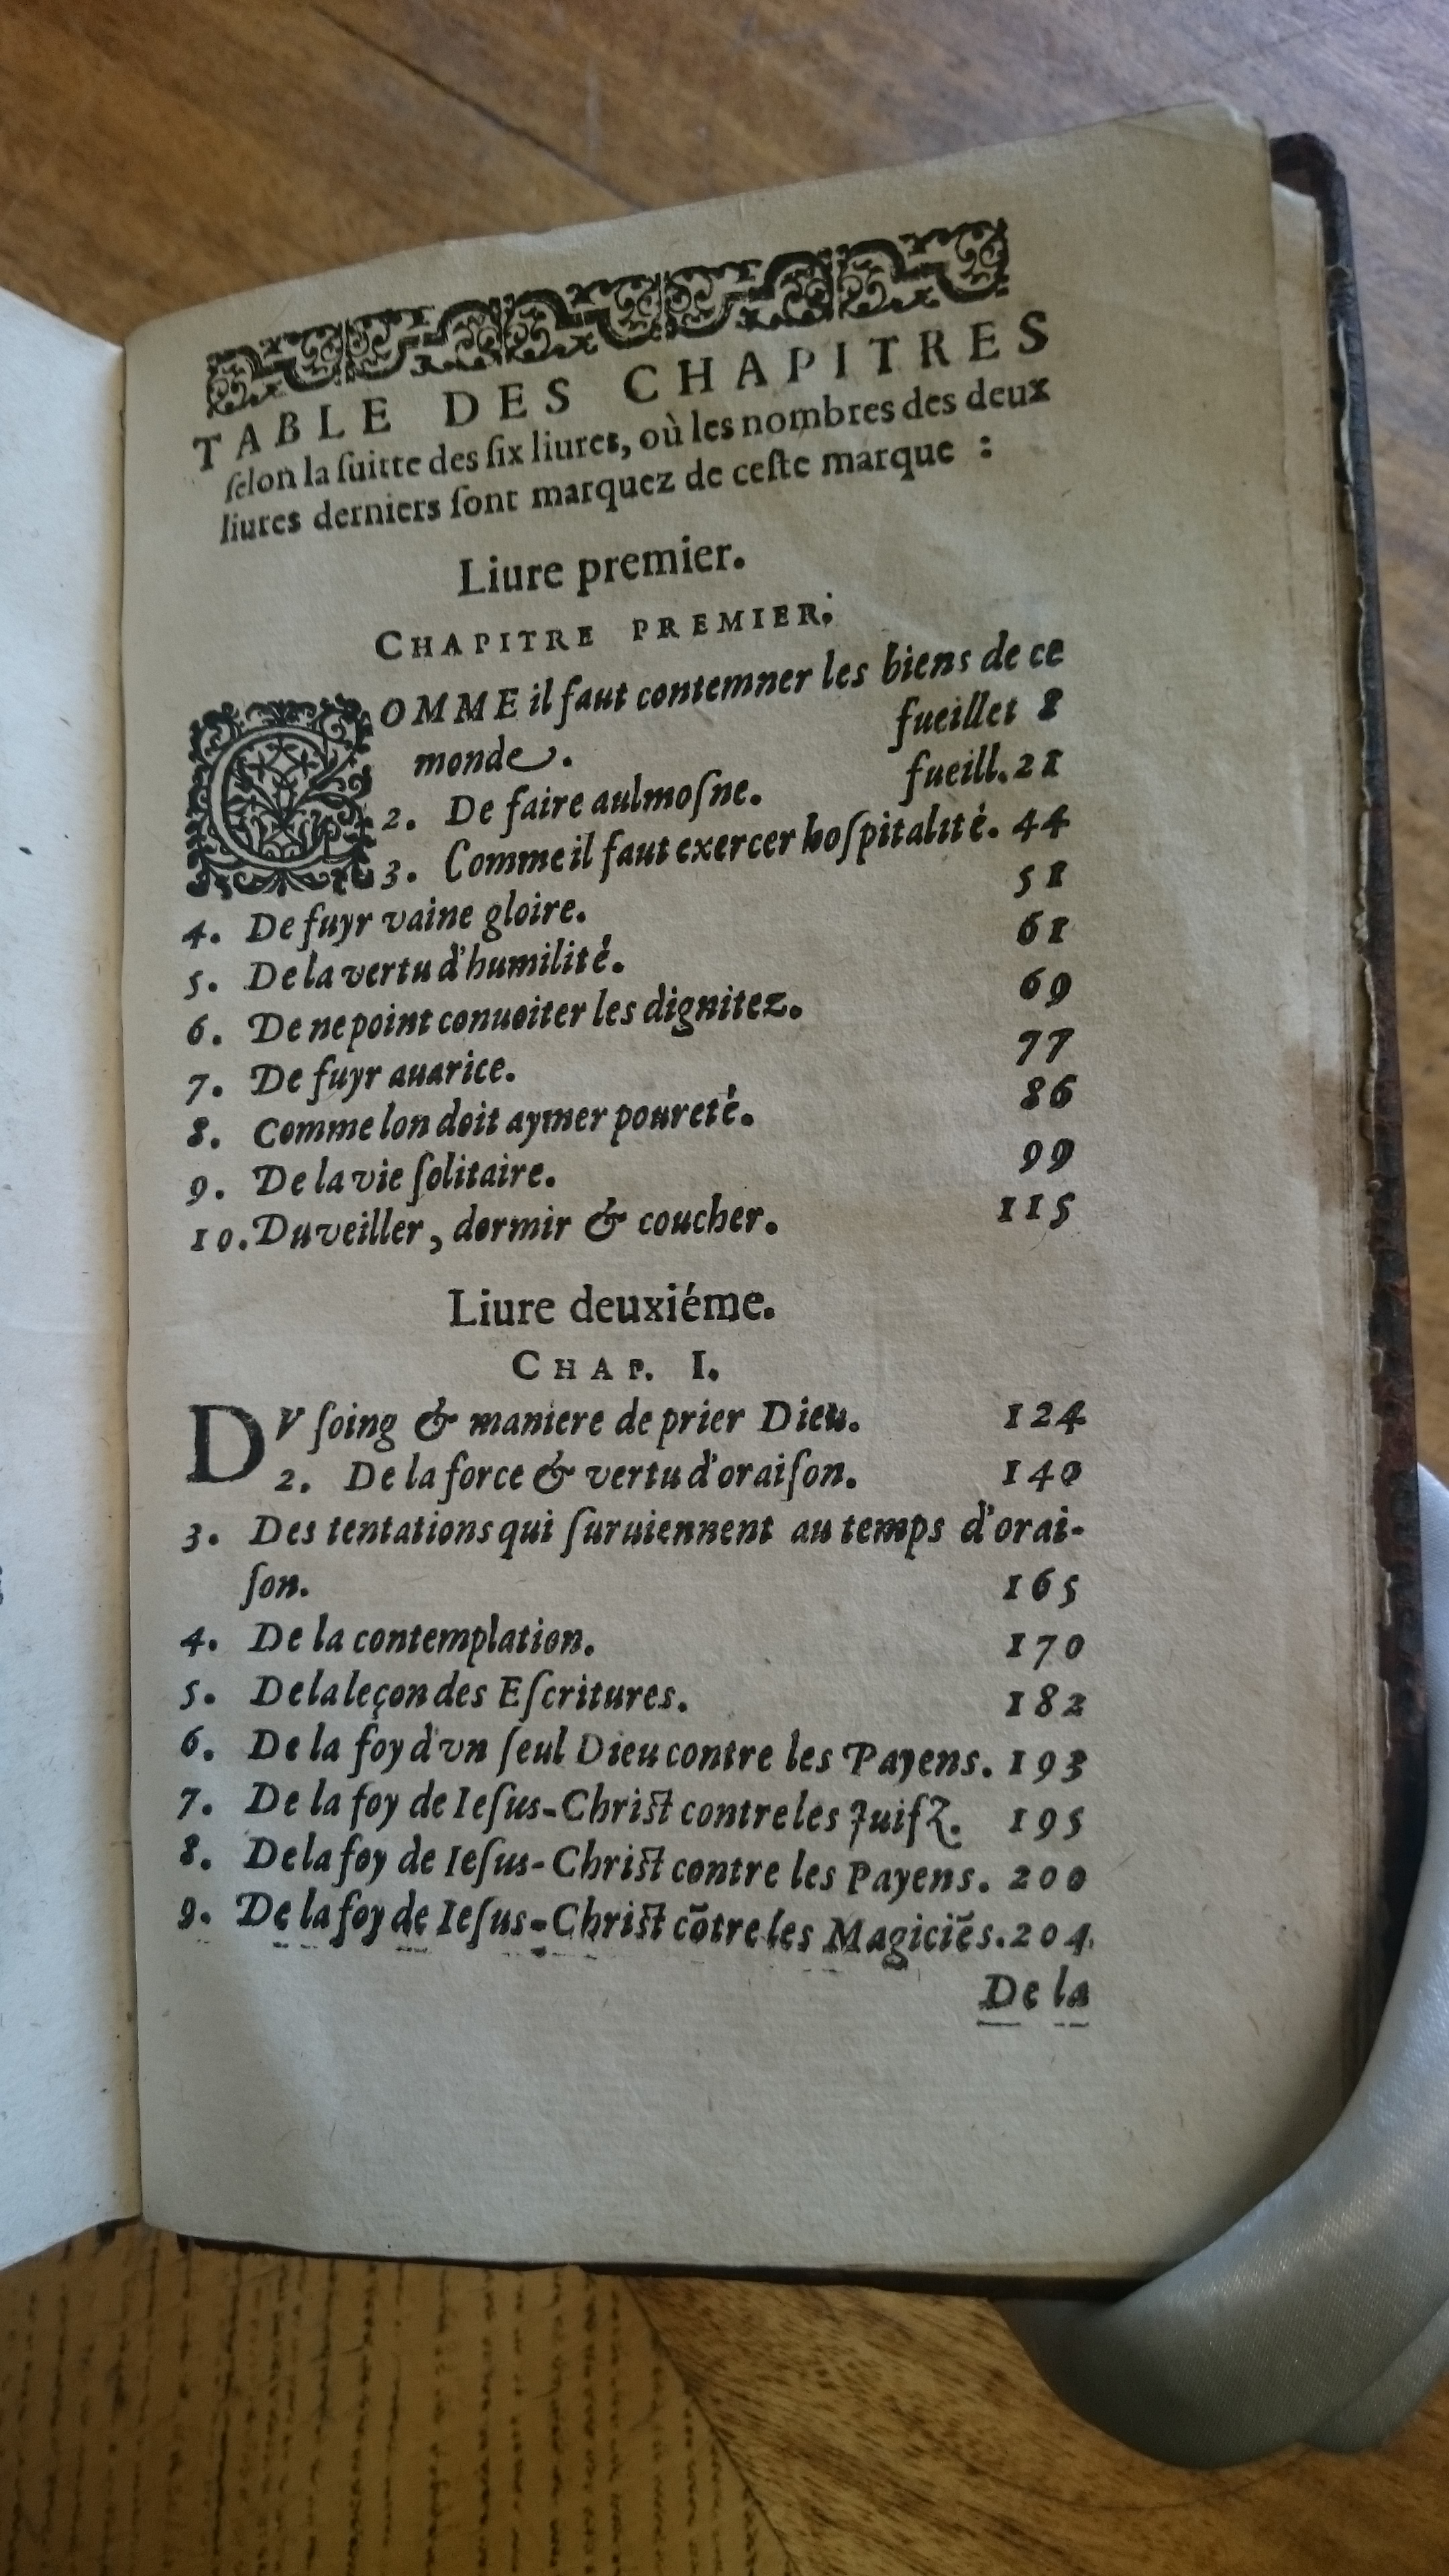 TABLE DES CHAPITRES
ſelon la ſuitte des ſix liures, où les nombres des deux
liures derniers ſont marquez de ceſte marque :
Liure premier.
CHAPITRE PREMIER.
COMME il faut contemner les biens de ce
monde. fueillet 8
2. De faire aulmoſne. fueill. 21
3. Comme il faut exercer hoſpitalité. 44
4. De fuyr vaine gloire. 51
5. De la vertu d'humilité. 61
6. De ne point conuoiter les dignitez. 69
7. De fuyr auarice. 77
8. Comme lon doit aymer poureté. 86
9. De la vie ſolitaire. 99
10. Du veiller, dormir & coucher. 115
Liure deuxiéme.
CHAP. I.
DV ſoing & maniere de prier Dieu. 124
2. De la force & vertu d'oraiſon. 140
3. Des tentations qui ſuruiennent au temps d'orai-
ſon. 165
4. De la contemplation. 170
5. De la leçon des Eſcritures. 182
6. De la foy d'vn ſeul Dieu contre les Payens. 193
7. De la foy de Ieſus-Chriſt contre les Juifz. 195
8. De la foy de Ieſus-Chriſt contre les Payens. 200
9. De la foy de Ieſus-Chriſt cōtre les Magiciēs. 204
De la